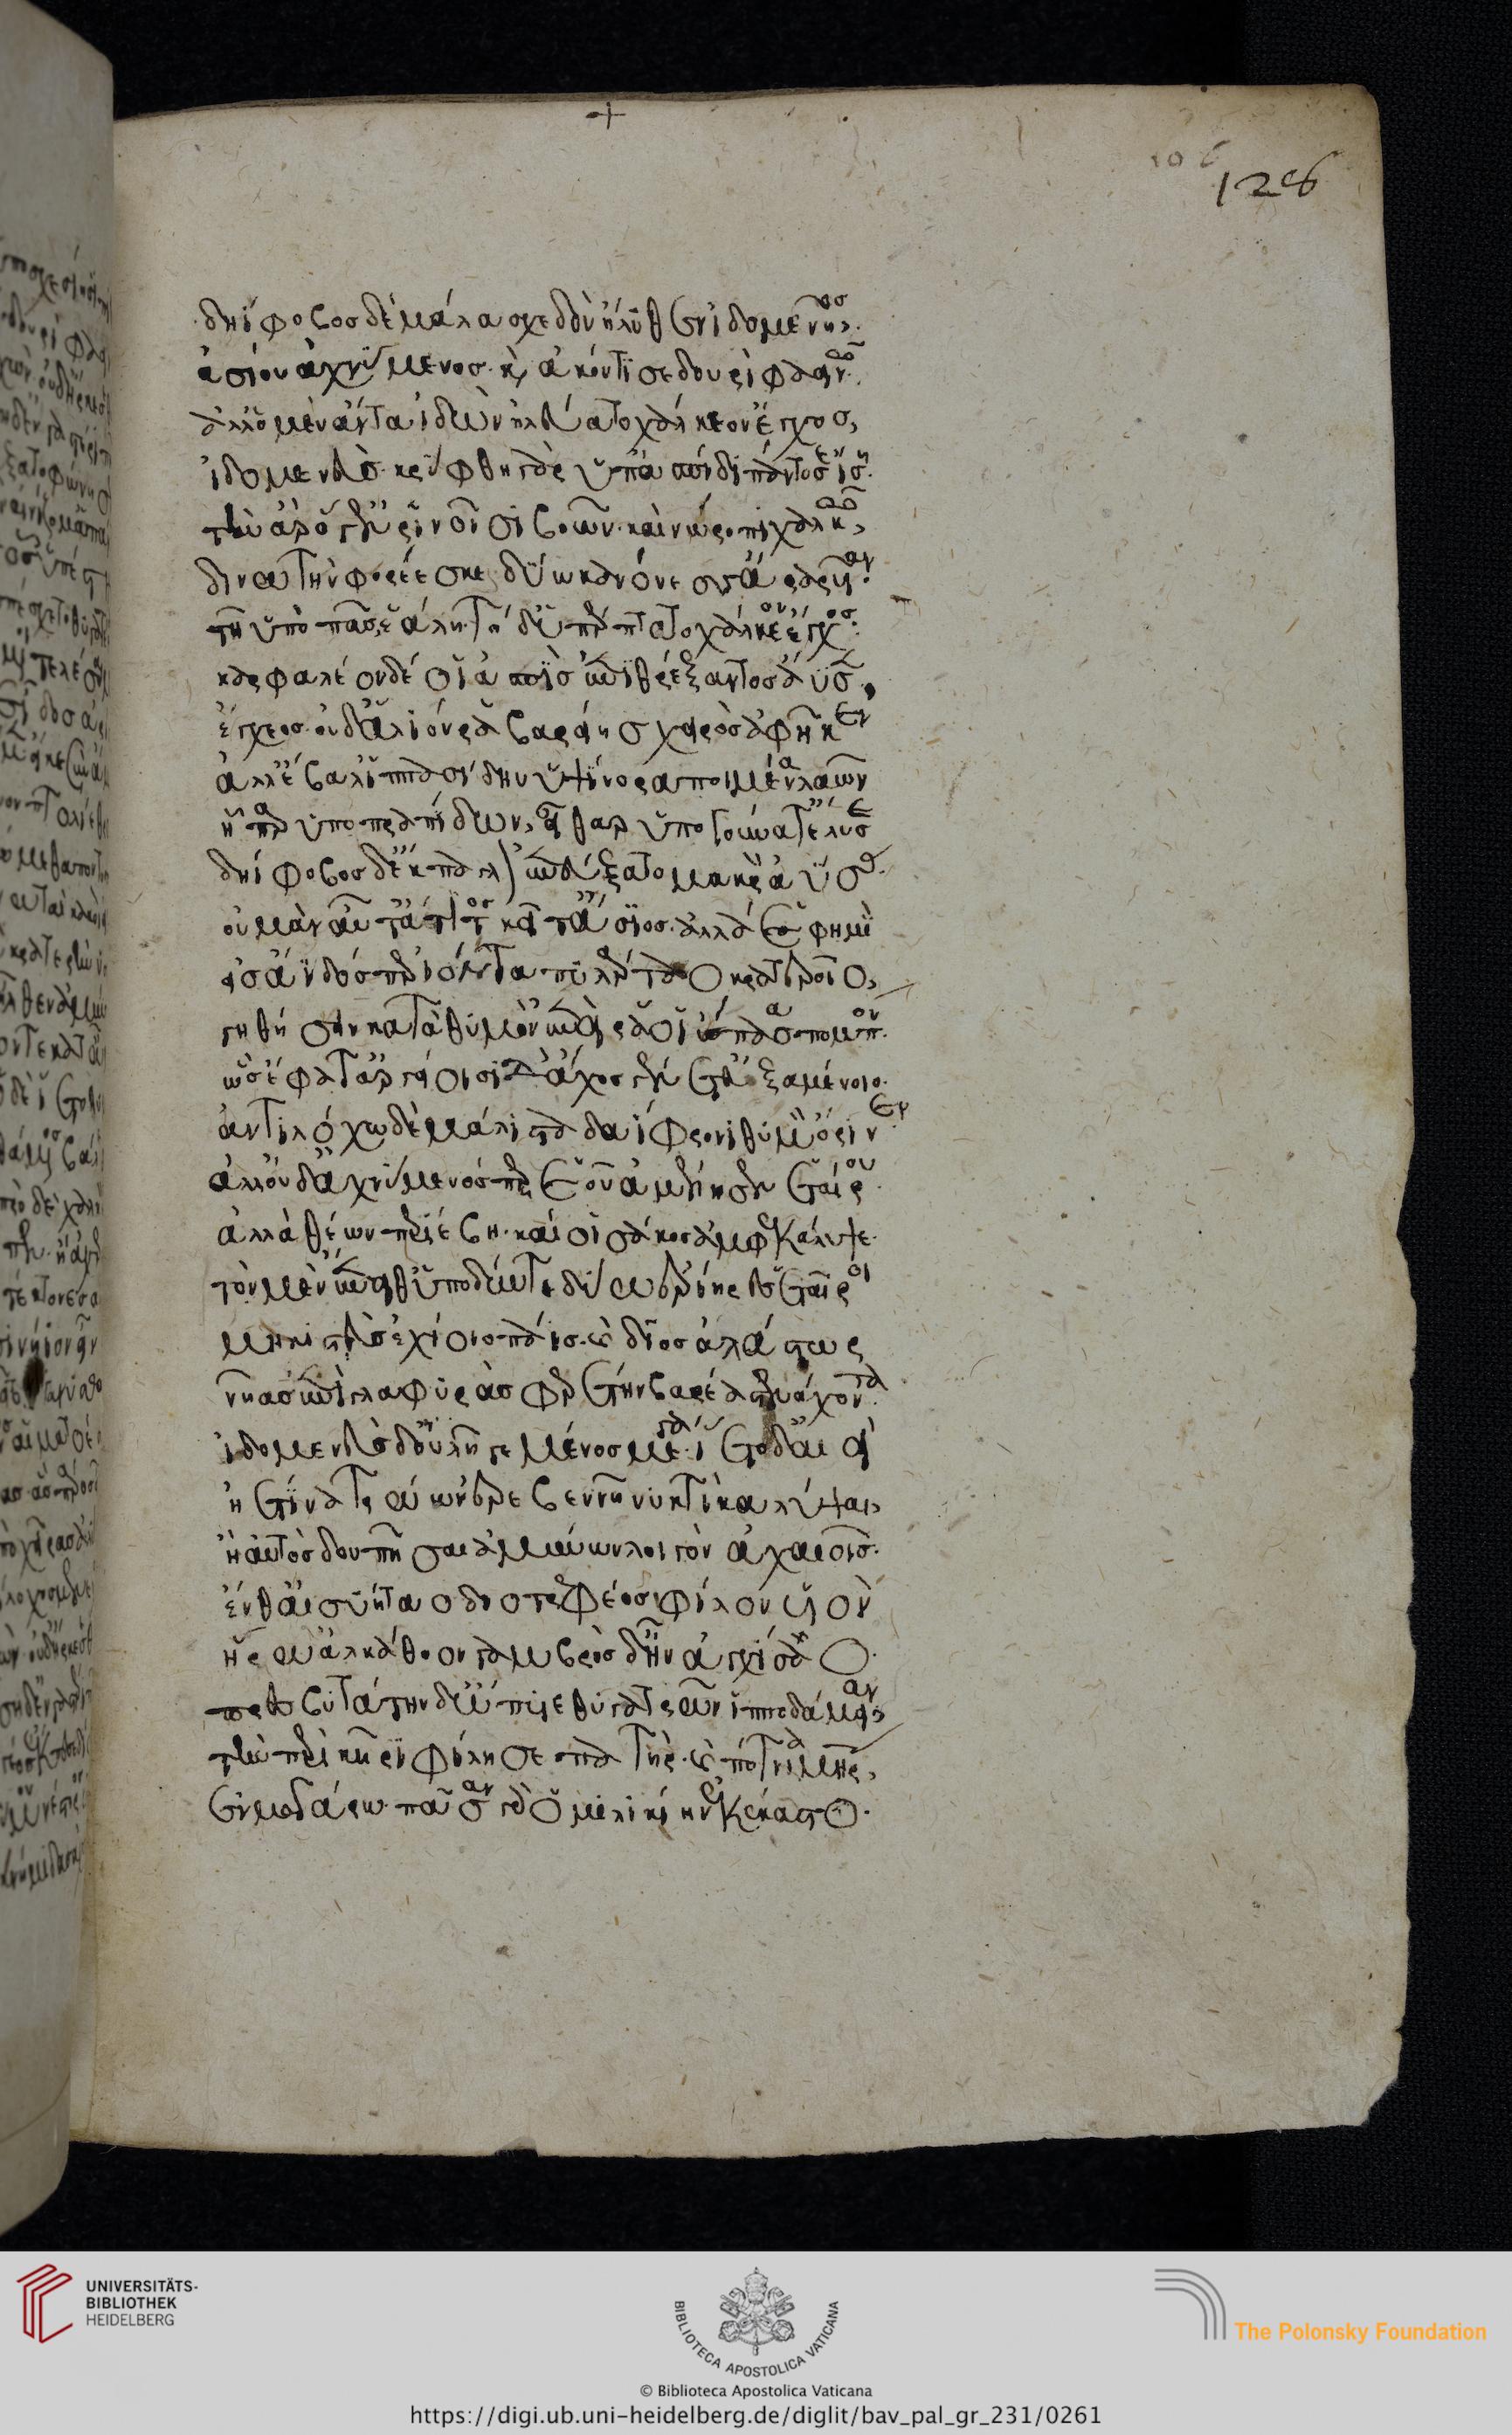 +
126
δηΐφοβος δὲ μάλα σχεδὸν ἤλυθεν ἰδομενῆος.
ἀσίου ἀχνύμενος. καὶ ἀκόντισε δουρὶ φαεινῶ.
ἀλλ' ὁ μὲν ἄντα ἰδὼν ἠλεύατο χάλκεον ἔγχος,
ἰδομενεύς. κρύφθη γὰρ ὑπ' ἀσπίδι πάντοσ' ἐΐση.
τὴν ἄρ' ὅ γε ῥινοῖσι βοῶν. καὶ νώροπι χαλκῶ,
δινωτὴν φορέεσκε, δύω κανόνεσσ' ἀραρυῖαν.
τῆ ὕπο πᾶς ἐάλη. τὸ δ' ὑπέρπτατο χάλκεον ἔγχος.
καρφαλέον δέ οἱ ἀσπὶς ἐπιθρέξαντος ἄϋσεν,
ἔγχεος. οὐδ' ἅλιόν ῥα βαρείης χειρὸς ἀφῆκεν
ἀλλ' ἔβαλ' ἱππασίδην ὑψήνορα ποιμένα λαῶν
ἧπαρ ὑπὸ πραπίδων, εἶθαρ ὑπὸ γούνατ' ἔλυσε
δηΐφοβος δ' ἔκπαγλον ἐπεύξατο μακρὰ ἀΰσας.
οὐ μὰν αὖτ' ἄτιτος κεῖτ' ἄσιος. ἀλλά ἕ φημὶ
εἰς ἄϊδός περ ἰόντα πυλάρταο κρατεροῖο,
γηθήσειν κατὰ θυμὸν ἐπεί ῥά οἱ ὤπασα πομπόν.
ὣς ἔφατ' ἀργείοισι δ' ἄχος γένετ' εὐξαμένοιο.
ἀντιλόχω δὲ μάλιστα δαΐφρονι θυμὸν ὄρινεν.
ἀλλ' οὐδ' ἀχνύμενός περ ἑοῦ ἀμέλησεν ἑταίρου.
ἀλλὰ θέων περίβη. καί οἱ σάκος ἀμφεκάλυψε.
τὸν μὲν ἔπειθ' ὑποδύντε δύω ἐρίηρες ἑταῖροι
μηκιστεὺς ἐχίοιο πάϊς. καὶ δῖος ἀλάστωρ
νῆας ἔπι γλαφυρὰς φερέτην βαρέα στενάχοντα.
ἰδομενεὺς δ' οὐ λῆγε μένος μέγα. ἵετο δ' αἰεὶ
ἠέ τινα τρώων ἐρεβεννῆ νυκτὶ καλύψαι,
ἢ αὐτὸς δουπῆσαι ἀμύνων λοιγὸν ἀχαιοῖς.
ἔνθ' αἰσυήταο διοτρεφέος φίλον υἱὸν
ἥρω' ἀλκάθοον γαμβρὸς δ' ἦν ἀγχίσαο.
πρεσβυτάτην δ' ὤπυιε θυγατρῶν ἱπποδάμειαν,
τὴν περὶ κῆρι φίλησε πατὴρ. καὶ πότνια μήτηρ,
ἐν μεγάρω. πᾶσαν γὰρ ὁμηλικίην ἐκέκαστο.
UNIVERSITÄTS-
BIBLIOTHEK
HEIDELBERG
BIBLIOTECA APOSTOLICA VATICANA
The Polonsky Foundation
© Biblioteca Apostolica Vaticana
https://digi.ub.uni-heidelberg.de/diglit/bav_pal_gr_231/0261